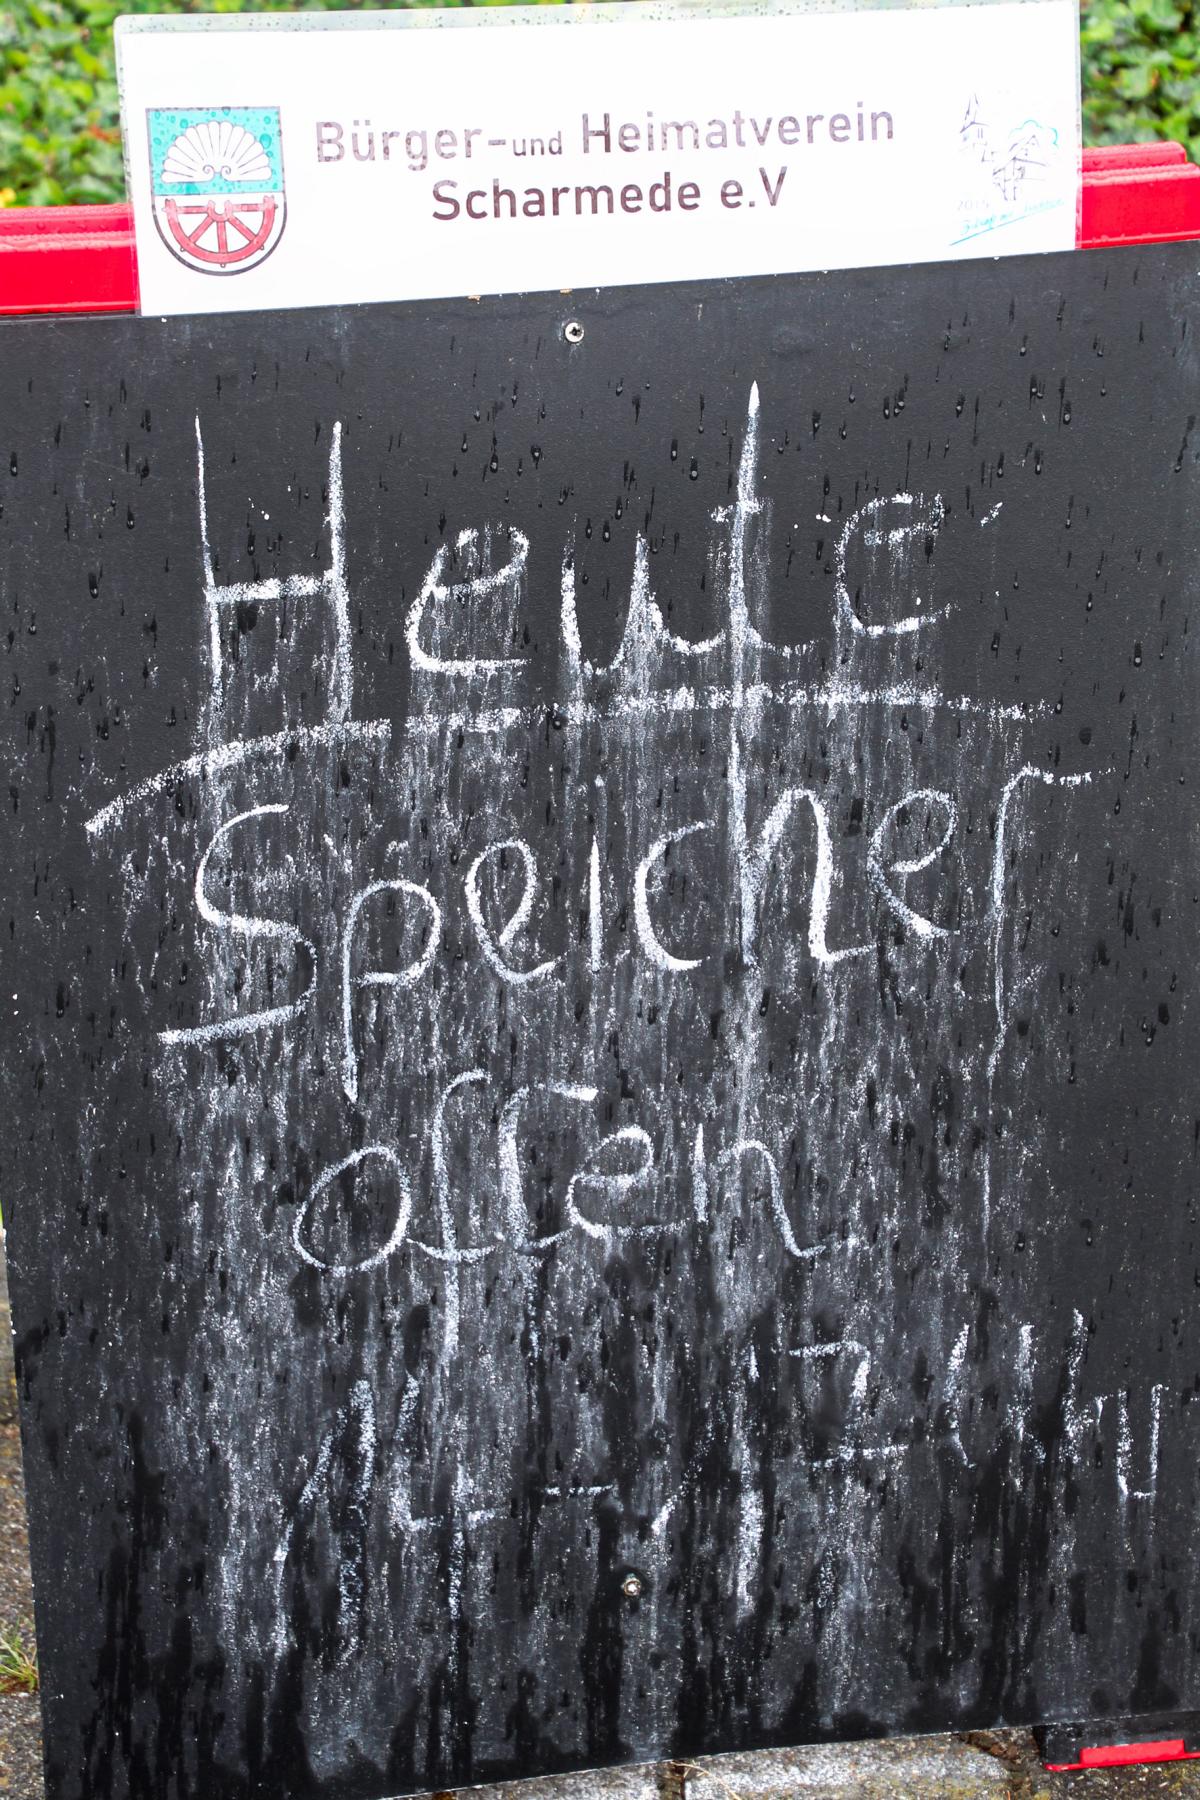 Bürger-und Heimatverein
Scharmede e.V
Heute
Speicher
offen
14-17 Uhr